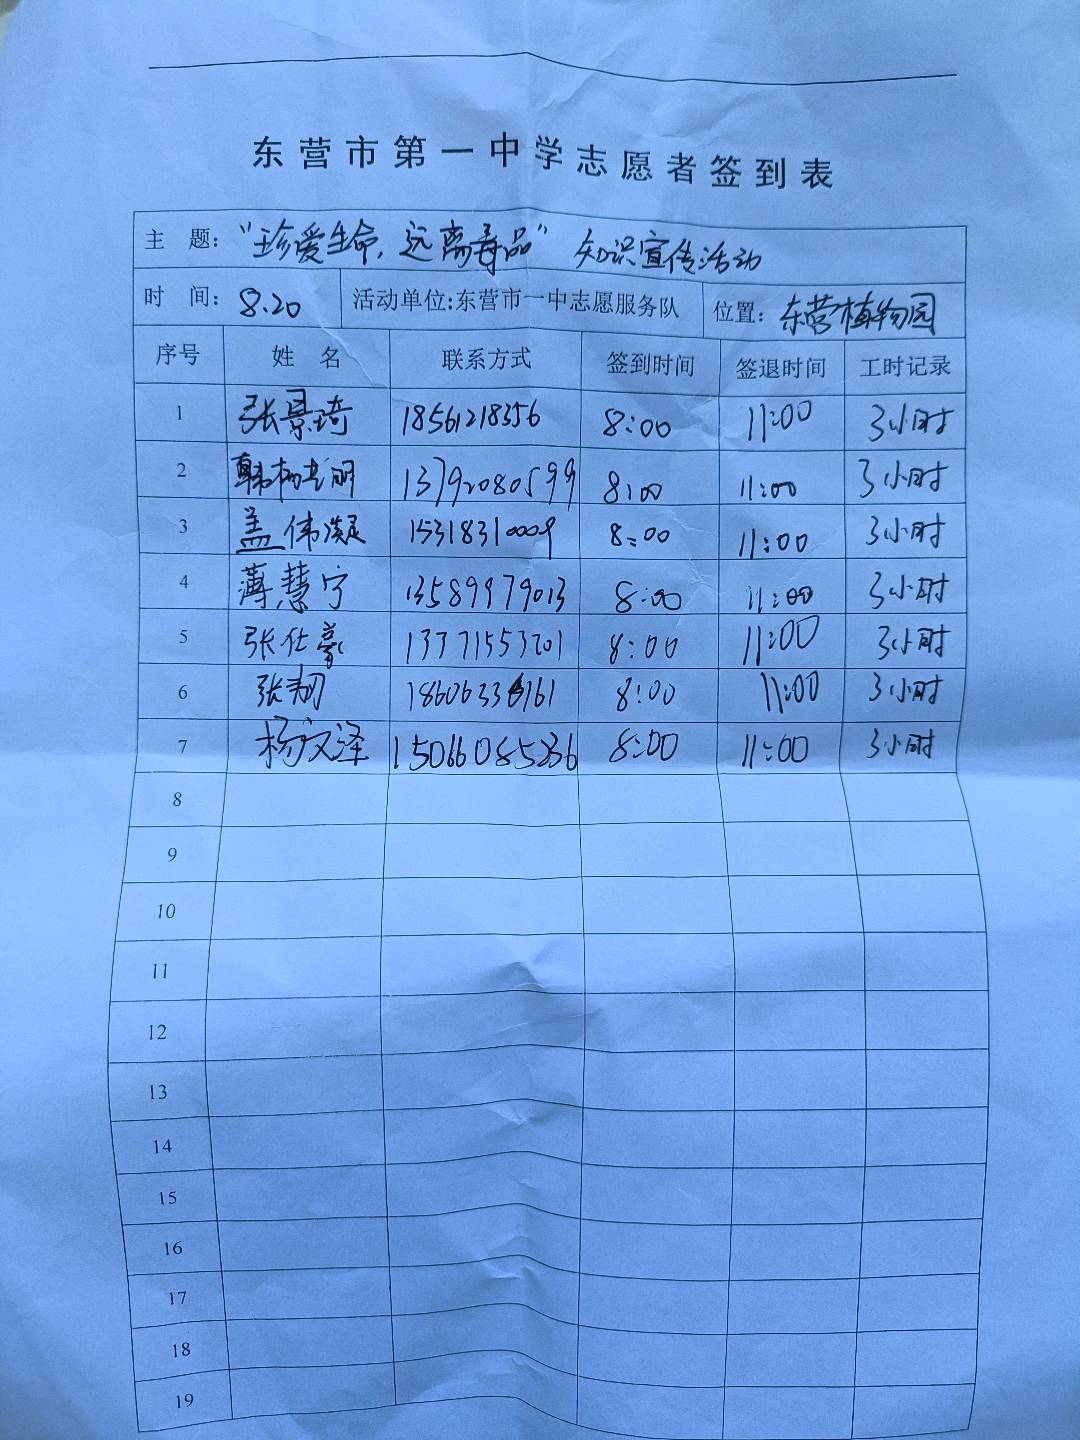 东营市第一中学志愿者签到表
主 题：“珍爱生命，远离毒品”知识宣传活动
时 间：8.20 活动单位:东营市一中志愿服务队 位置：东营植物园
序号 姓 名 联系方式 签到时间 签退时间 工时记录
1 张景琦 18561218356 8:00 11:00 3小时
2 韩 明 13792080599 8:00 11:00 3小时
3 盖伟凝 15318310009 8:00 11:00 3小时
4 薄慧宁 13589979013 8:00 11:00 3小时
5 张仕豪 13371553201 8:00 11:00 3小时
6 张翔 8:00 11:00 3小时
7 杨文泽 15066085236 8:00 11:00 3小时
8
9
10
11
12
13
14
15
16
17
18
19